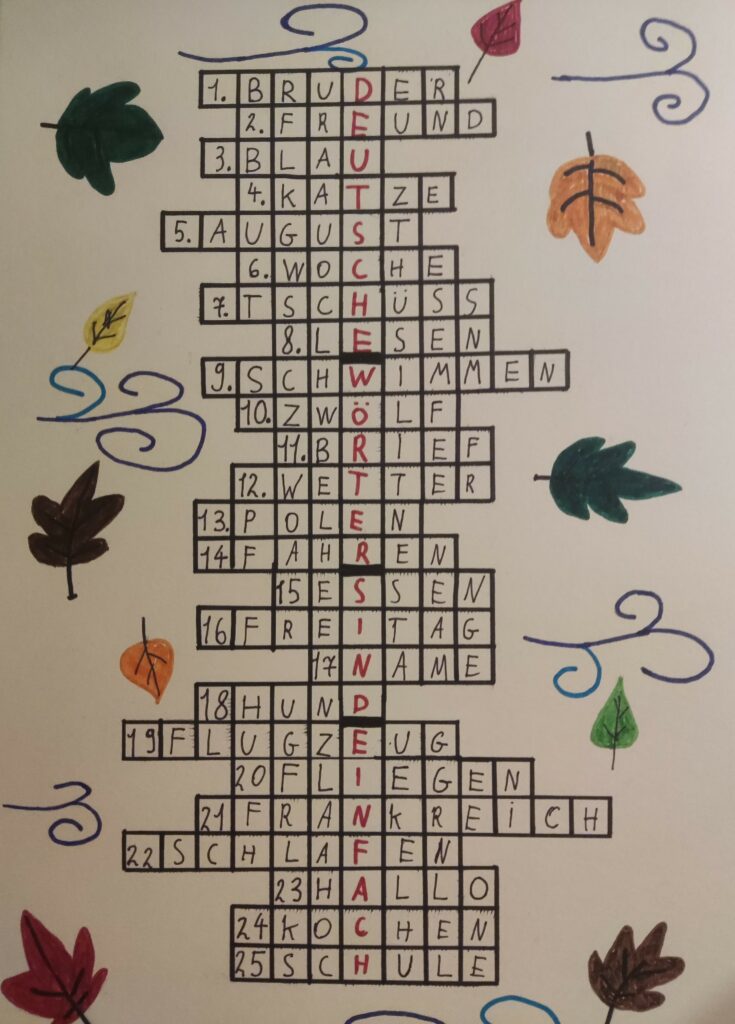 1. BRUDER
2. FREUND
3. BLAU
4. KATZE
5. AUGUST
6. WOCHE
7. TSCHÜSS
8. LESEN
9. SCHWIMMEN
10. ZWÖLF
11. BRIEF
12. WETTER
13. POLEN
14 FAHREN
15 ESSEN
16 FREITAG
17 NAME
18 HUND
19 FLUGZEUG
20 FLIEGEN
21 FRANKREICH
22 SCHLAFEN
23 HALLO
24 KOCHEN
25 SCHULE